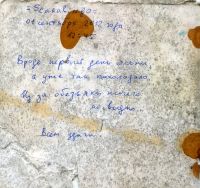 01 сентября 2012 года
Вроде первый день осени,
а уже так похолодало,
Из за обезьяны ничего
не видно.
Всем удачи!